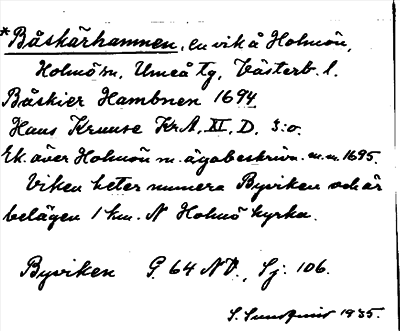 *Båskärhamnen, en vik å Holmön,
Holmö sn, Umeå tg, Västerb. l.
Båskier Hambnen 1694
Hans Kruuse Kr A. XI. D. 3:o.
Ek. över Holmön m. ägobeskrivn. m.m. 1695.
Viken heter numera Byviken och är
belägen 1 km. N Holmö kyrka.
Byviken G. 64 NV., Sj. 106.
S. Sundqvist 1935.